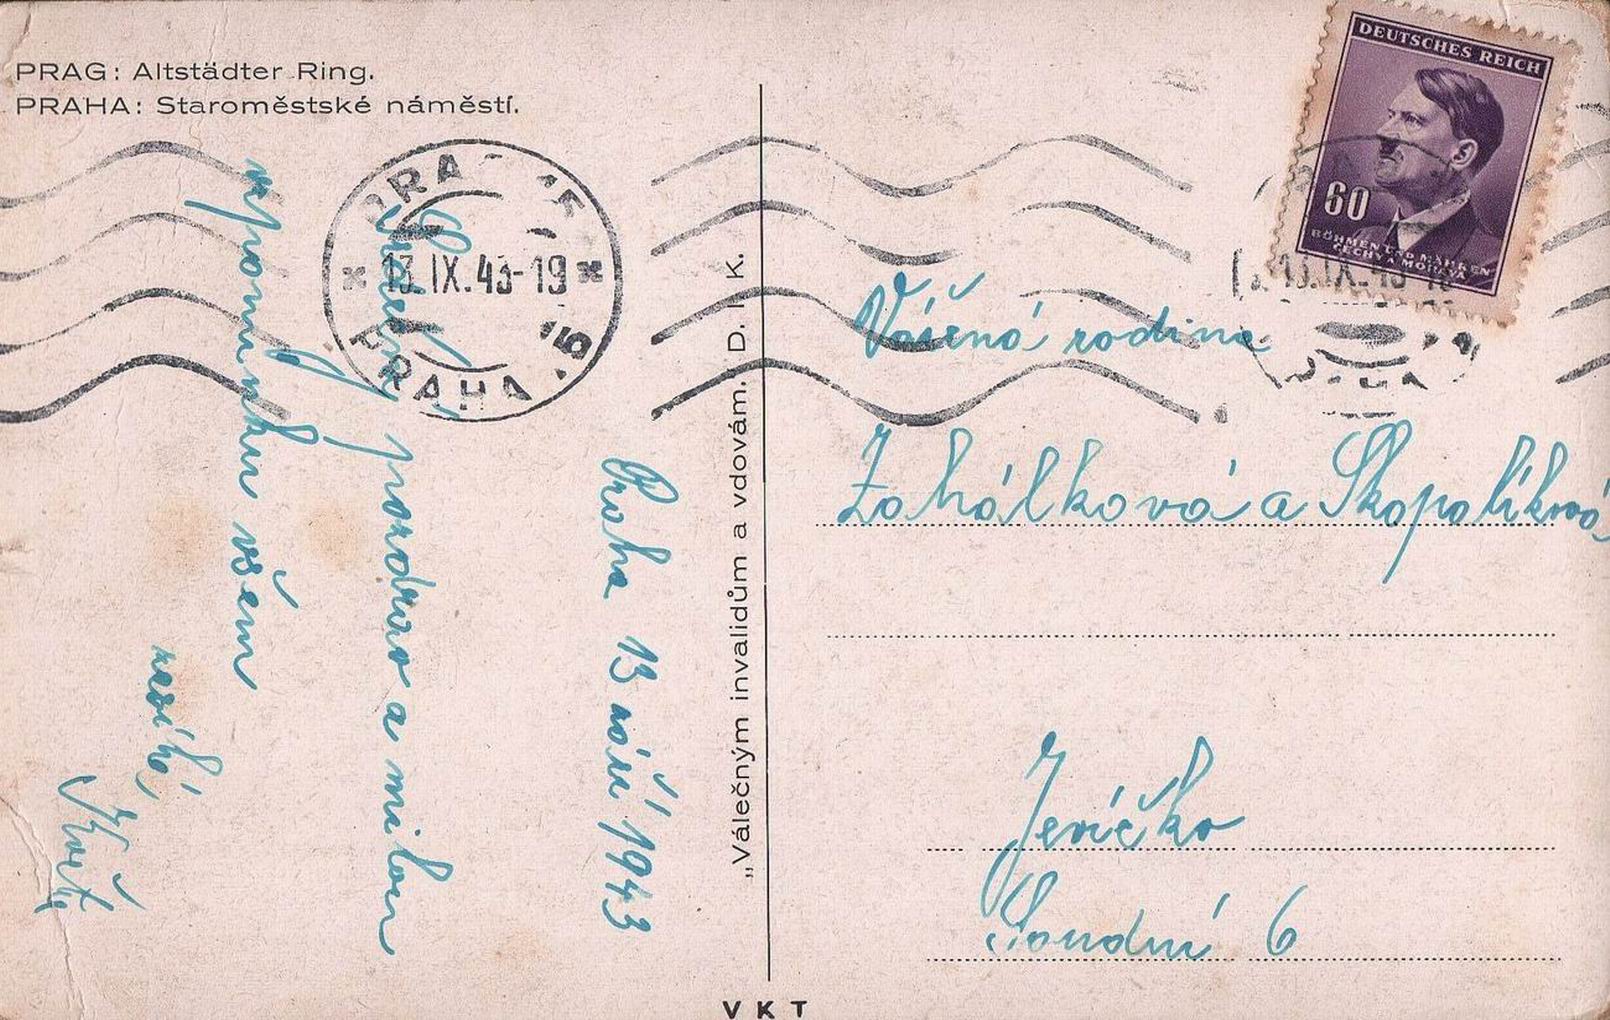 PRAG: Altstädter Ring.
PRAHA: Staroměstské náměstí.
PRAHA
13.IX.43-19
DEUTSCHES REICH
60
BÖHMEN UND MÄHREN
ČECHY A MORAVA
Praha 13 září 1943
Srdečný pozdrav a milou
vzpomínku všem
„Válečným invalidům a vdovám. D. I. K.
Vážená rodina
Zahálková a Skopalíková
Jevíčko
Soudní 6
VKT